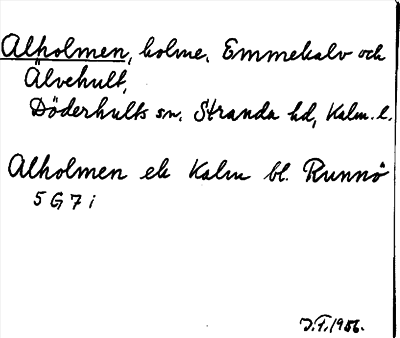 Alholmen, holme, Emmekalv och
Älvehult,
Döderhults sn. Stranda hd, Kalm. l.
Alholmen ek Kalm bl. Runnö
5 G 7 i
J.F. 1956.